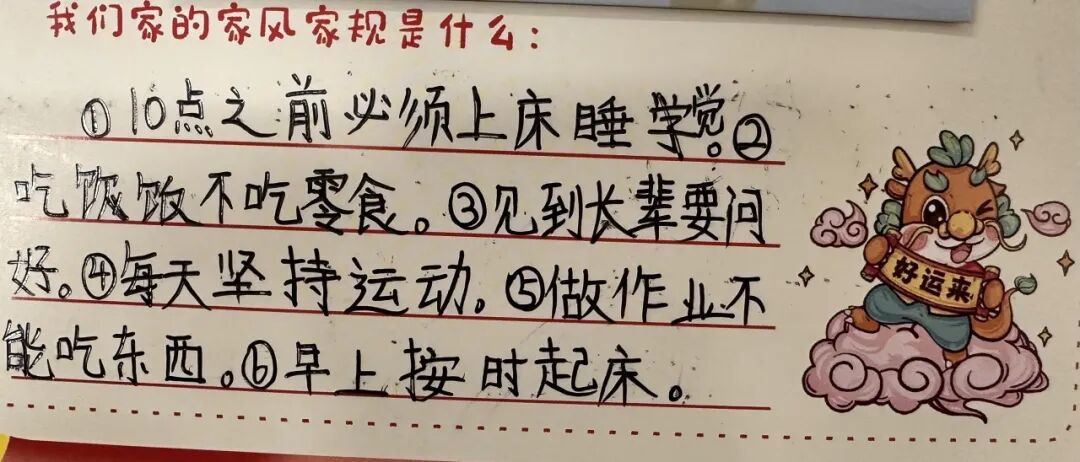 我们家的家风家规是什么：
①10点之前必须上床睡学觉。②
吃饭饭不吃零食。③见到长辈要问
好。④每天坚持运动。⑤做作业不
能吃东西。⑥早上按时起床。
好运来